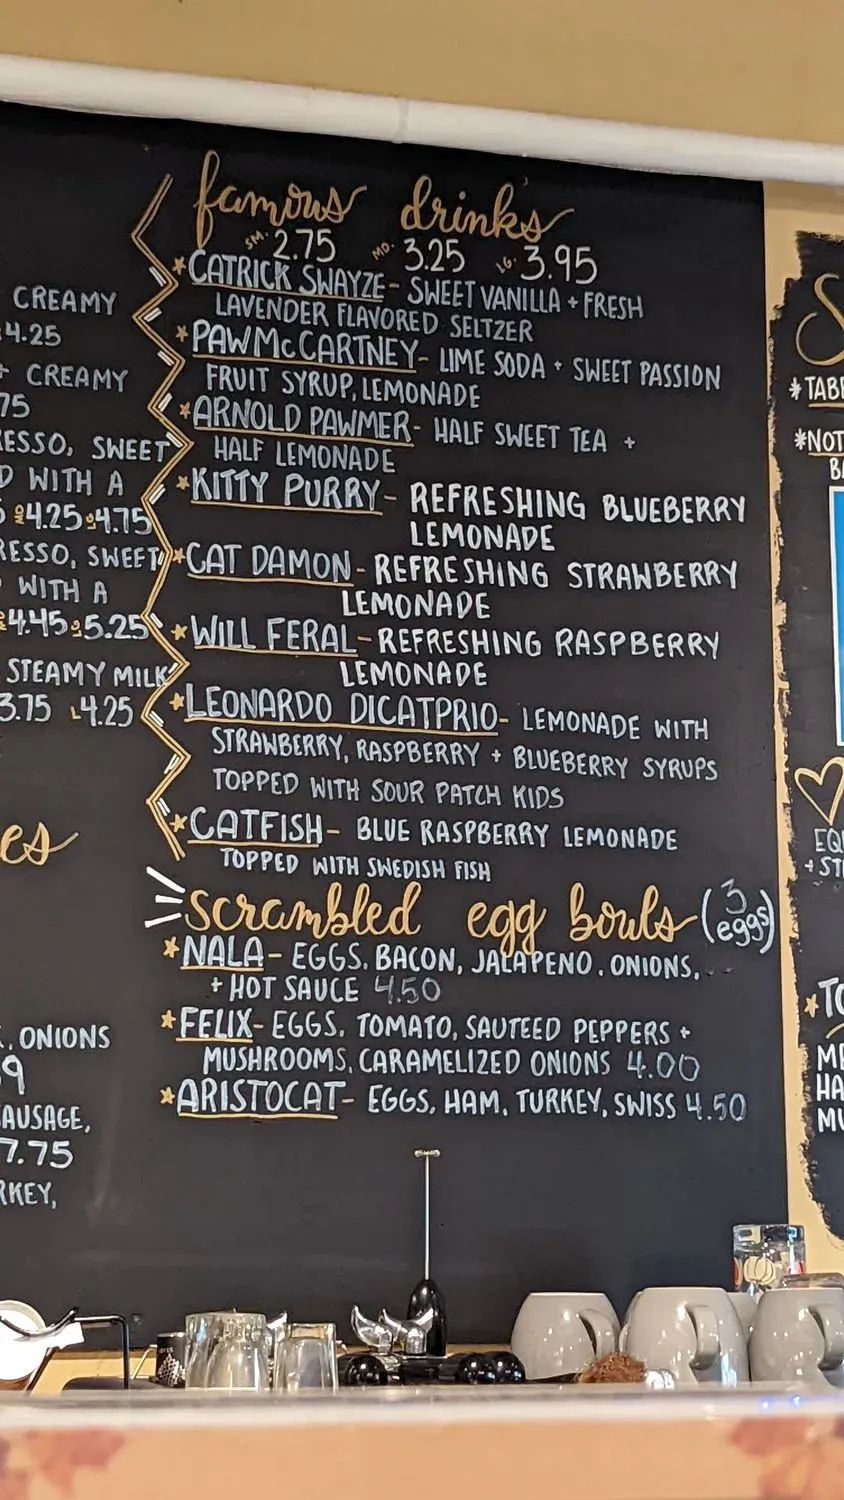 CREAMY
4.25
+ CREAMY
75
ESSO, SWEET
D WITH A
4.25 4.75
RESSO, SWEET
WITH A
4.45 5.25
STEAMY MILK
3.75 L4.25
es
, ONIONS
9
AUSAGE,
7.75
RKEY,
famous drinks
SM. 2.75 MD. 3.25 LG. 3.95
*CATRICK SWAYZE- SWEET VANILLA + FRESH
LAVENDER FLAVORED SELTZER
*PAWMcCARTNEY- LIME SODA + SWEET PASSION
FRUIT SYRUP, LEMONADE
*ARNOLD PAWMER- HALF SWEET TEA +
HALF LEMONADE
*KITTY PURRY- REFRESHING BLUEBERRY
LEMONADE
*CAT DAMON- REFRESHING STRAWBERRY
LEMONADE
*WILL FERAL- REFRESHING RASPBERRY
LEMONADE
*LEONARDO DICATPRIO- LEMONADE WITH
STRAWBERRY, RASPBERRY + BLUEBERRY SYRUPS
TOPPED WITH SOUR PATCH KIDS
*CATFISH- BLUE RASPBERRY LEMONADE
TOPPED WITH SWEDISH FISH
scrambled egg bowls (3 eggs)
*NALA- EGGS, BACON, JALAPENO, ONIONS,
+ HOT SAUCE 4.50
*FELIX- EGGS, TOMATO, SAUTEED PEPPERS +
MUSHROOMS, CARAMELIZED ONIONS 4.00
*ARISTOCAT- EGGS, HAM, TURKEY, SWISS 4.50
S
*TAB
*NOT
BA
EQ
+ ST
*TO
ME
HA
MU